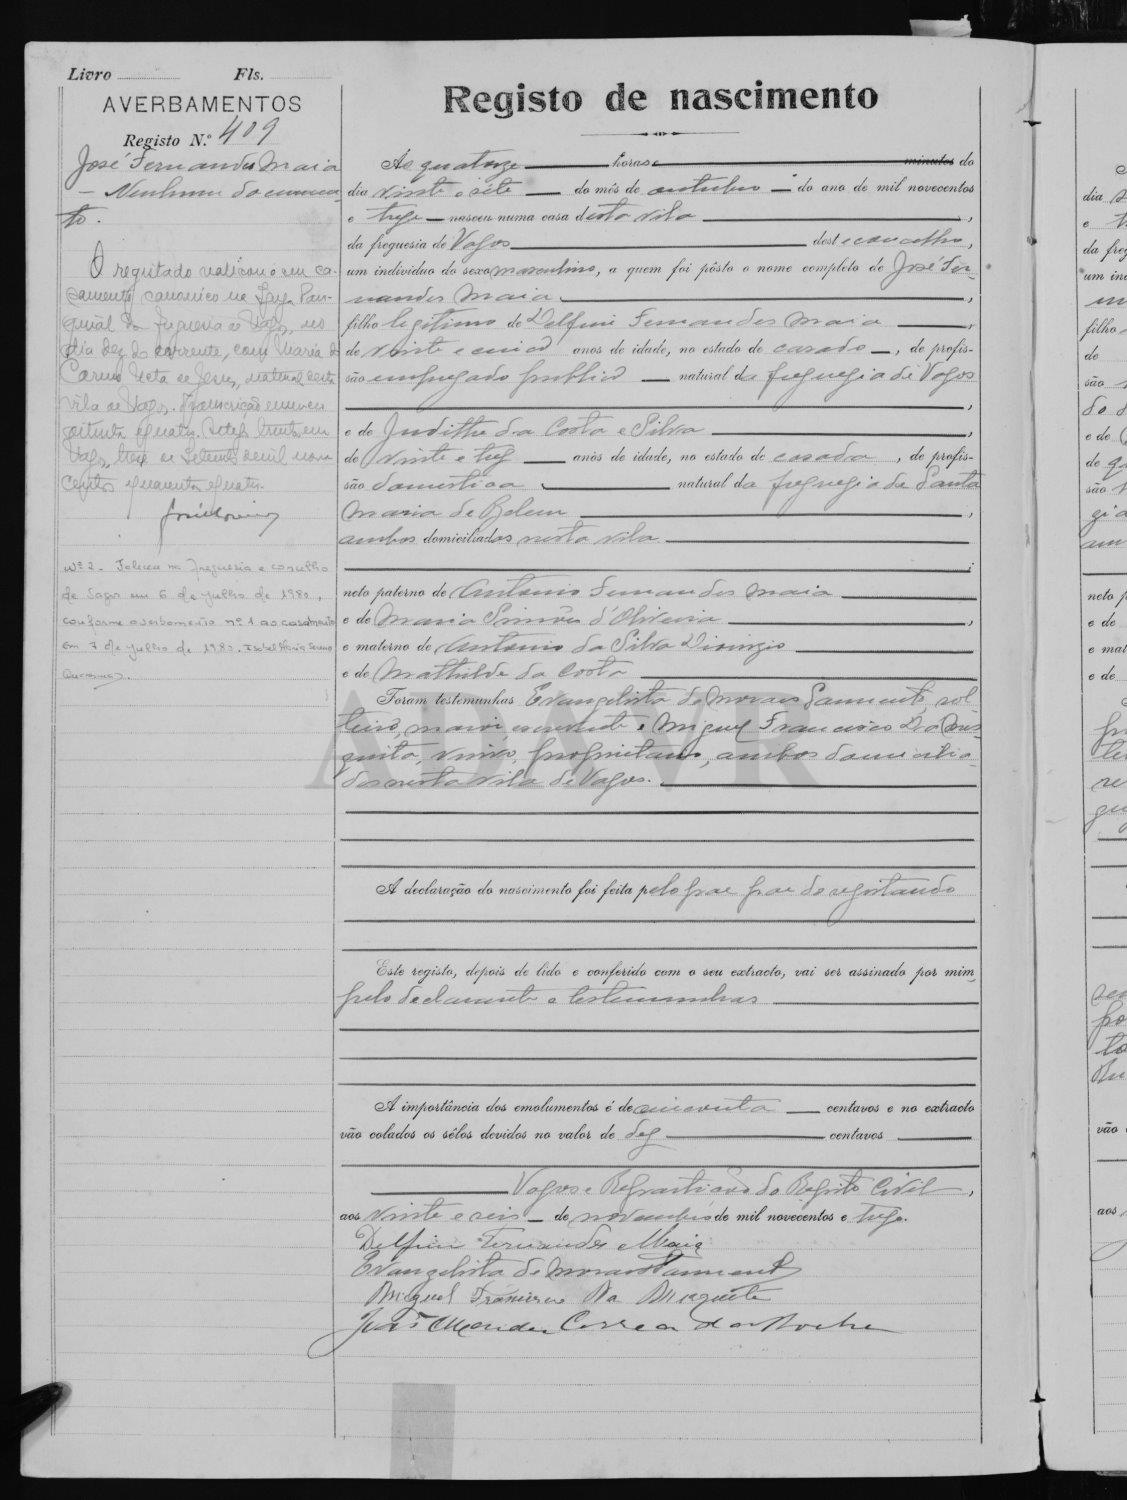 Livro Fls.
AVERBAMENTOS
Registo N.º 409
José Fernandes Maia
— Nenhum documen-
to.
O registado realizou o seu ca-
samento canonico na Igreja Paro-
quial da freguesia de Vagos, no
dia dez do corrente, com Maria do
Carmo Neta de Jesus, natural desta
vila de Vagos. Transcrição numero
oitenta e quatro.
Vagos, treze de Setembro de mil nove
centos e quarenta e quatro.
Nº 2 - Faleceu na freguesia e concelho
de Vagos em 6 de Julho de 1980,
conforme averbamento nº 1 ao casamento
em 7 de Julho de 1980. Isabel Maria
Registo de nascimento
Ás quatorze horas e minutos do
dia vinte e sete do mês de outubro do ano de mil novecentos
e treze nasceu numa casa desta vila,
da freguesia de Vagos deste concelho,
um individuo do sexo masculino, a quem foi pôsto o nome completo de José Fer-
nandes Maia,
filho legitimo de Delfim Fernandes Maia,
de vinte e cinco anos de idade, no estado de casado, de profis-
são empregado publico natural da freguezia de Vagos
,
e de Judithe da Costa e Silva,
de vinte e trez anos de idade, no estado de casada, de profis-
são domestica, natural da freguezia de Santa
Maria de Belem,
ambos domiciliados nesta vila
;
neto paterno de Antonio Fernandes Maia
e de Maria Simões d'Oliveira,
e materno de Antonio da Silva Dionizio
e de Mathilde da Costa
Foram testemunhas Evangelista de Moraes Sarmento, sol-
teiro, maior, escrevente e Miguel Francisco Da Mes-
quita, viuvo, proprietario, ambos domicilia-
dos nesta vila de Vagos.
A declaração do nascimento foi feita pelo pae do registando
Este registo, depois de lido e conferido com o seu extracto, vai ser assinado por mim
pelo declarante e testemunhas
A importância dos emolumentos é de cincoenta centavos e no extracto
vão colados os sêlos devidos no valor de dez centavos
Vagos e Repartição do Registo Civil,
aos vinte e seis de novembro de mil novecentos e treze.
Delfim Fernandes Maia
Evangelista de Moraes Sarmento
Miguel Francisco Da Mesquita
João Mendes Correa da Rocha
ADAVR